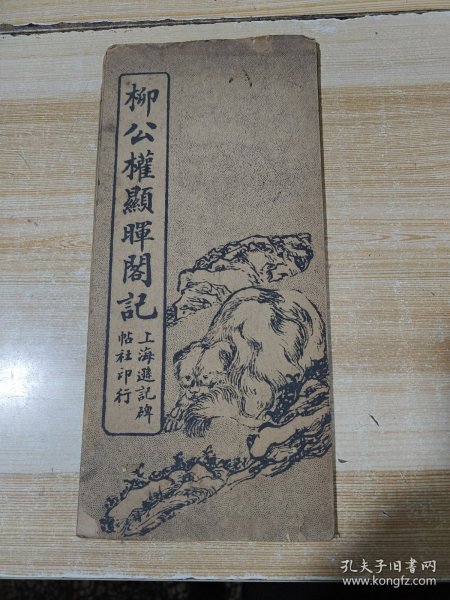 柳公權顯暉閣記
上海遊記碑
帖社印行
孔夫子旧书网
www.kongfz.com